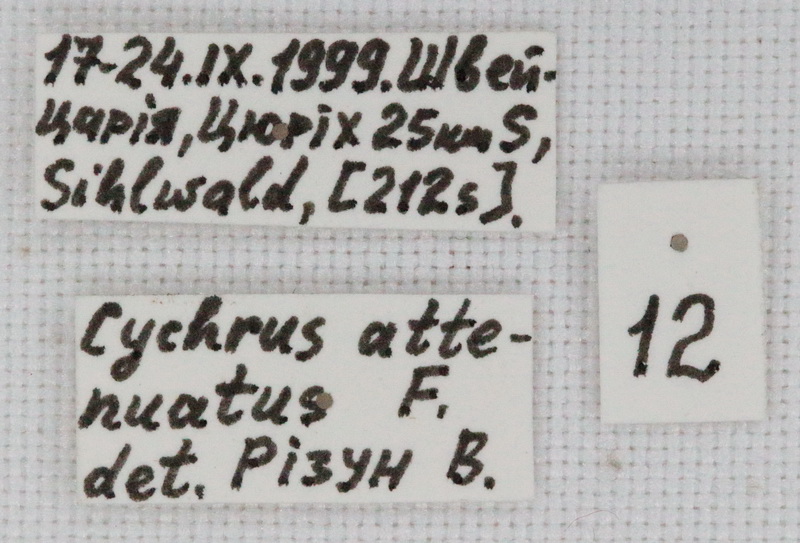 17-24.IX.1999.Швей-
царія, Цюріх 25км S,
Sihlwald, [212s].
Cychrus atte-
nuatus F.
det. Різун В.
12